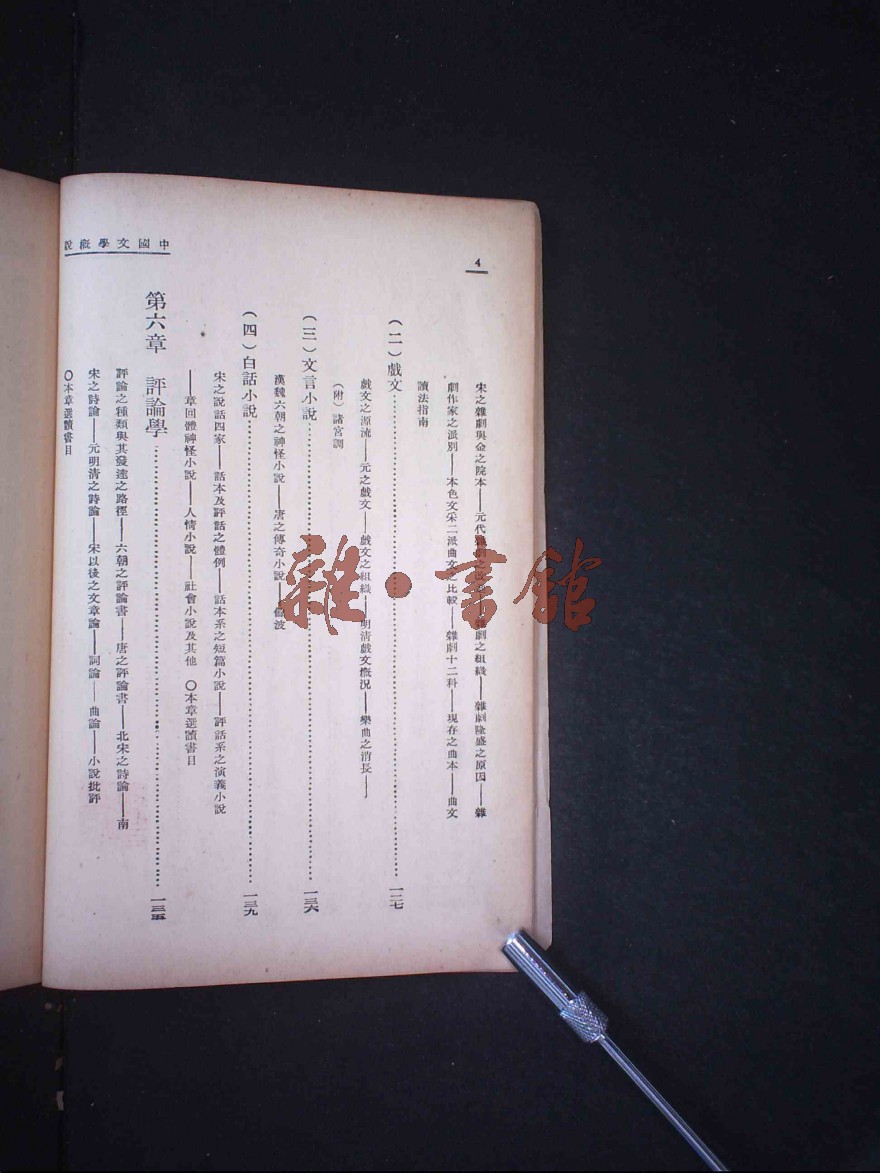 4
中國文學概說
宋之雜劇與金之院本——元代雜劇之——雜劇之組織——雜劇隆盛之原因——雜
劇作家之派別——本色文采二派曲文之比較——雜劇十二科——現存之曲本——曲文
讀法指南
(二)戲文……一二七
戲文之源流——元之戲文——戲文之組織——明清戲文概況——樂曲之消長——
(附)諸宮調
(三)文言小說……一三六
漢魏六朝之神怪小說——唐之傳奇小說——餘波
(四)白話小說……一三九
宋之說話四家——話本及評話之體例——話本系之短篇小說——評話系之演義小說
——章回體神怪小說——人情小說——社會小說及其他 〇本章選讀書目
第六章 評論學……一三五
評論之種類與其發達之路徑——六朝之評論書——唐之評論書——北宋之詩論——南
宋之詩論——元明清之詩論——宋以後之文章論——詞論——曲論——小說批評
〇本章選讀書目
雜·書館